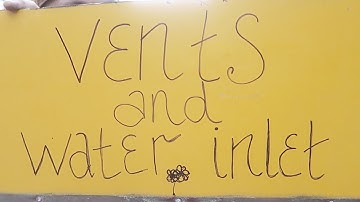 VENTS
and
WATER inlet